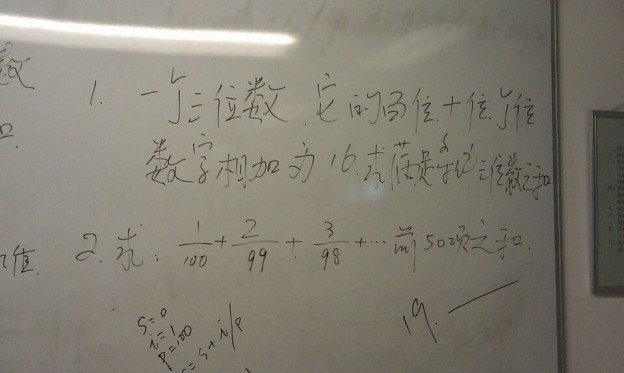 数
1. 一个三位数,它的百位十位个位
数字相加为16.求满足条件的三位数之和
值. 2. 求: 1/100 + 2/99 + 3/98 + … 前50项之和.
S=0
i=1
P=100
S=S+i/P
19.